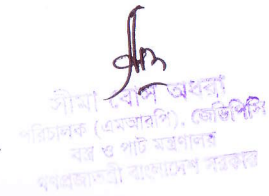 সীমা বোস অধরা
পরিচালক (এমআরপি), জেডিপিসি
বস্ত্র ও পাট মন্ত্রণালয়
গণপ্রজাতন্ত্রী বাংলাদেশ সরকার